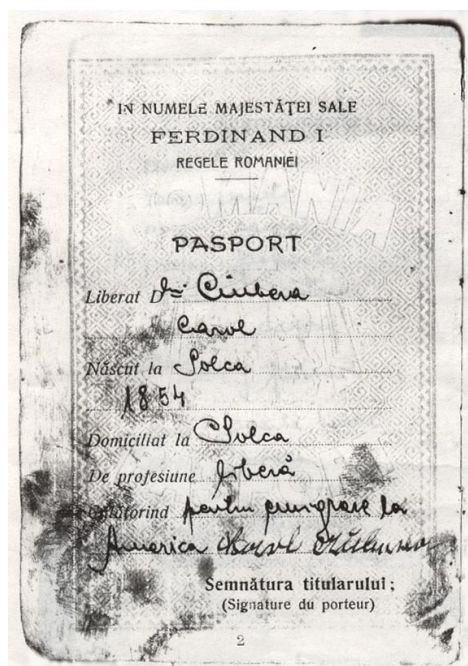 IN NUMELE MAJESTĂŢEI SALE
FERDINAND I
REGELE ROMANIEI
ROMANIA
PASPORT
Liberat Dlui Ciubera
Carol
Născut la Solca
1854
Domiciliat la Solca
De profesiune liberă
Călătorind pentru emigrare la
America
Semnătura titularului;
(Signature du porteur)
2